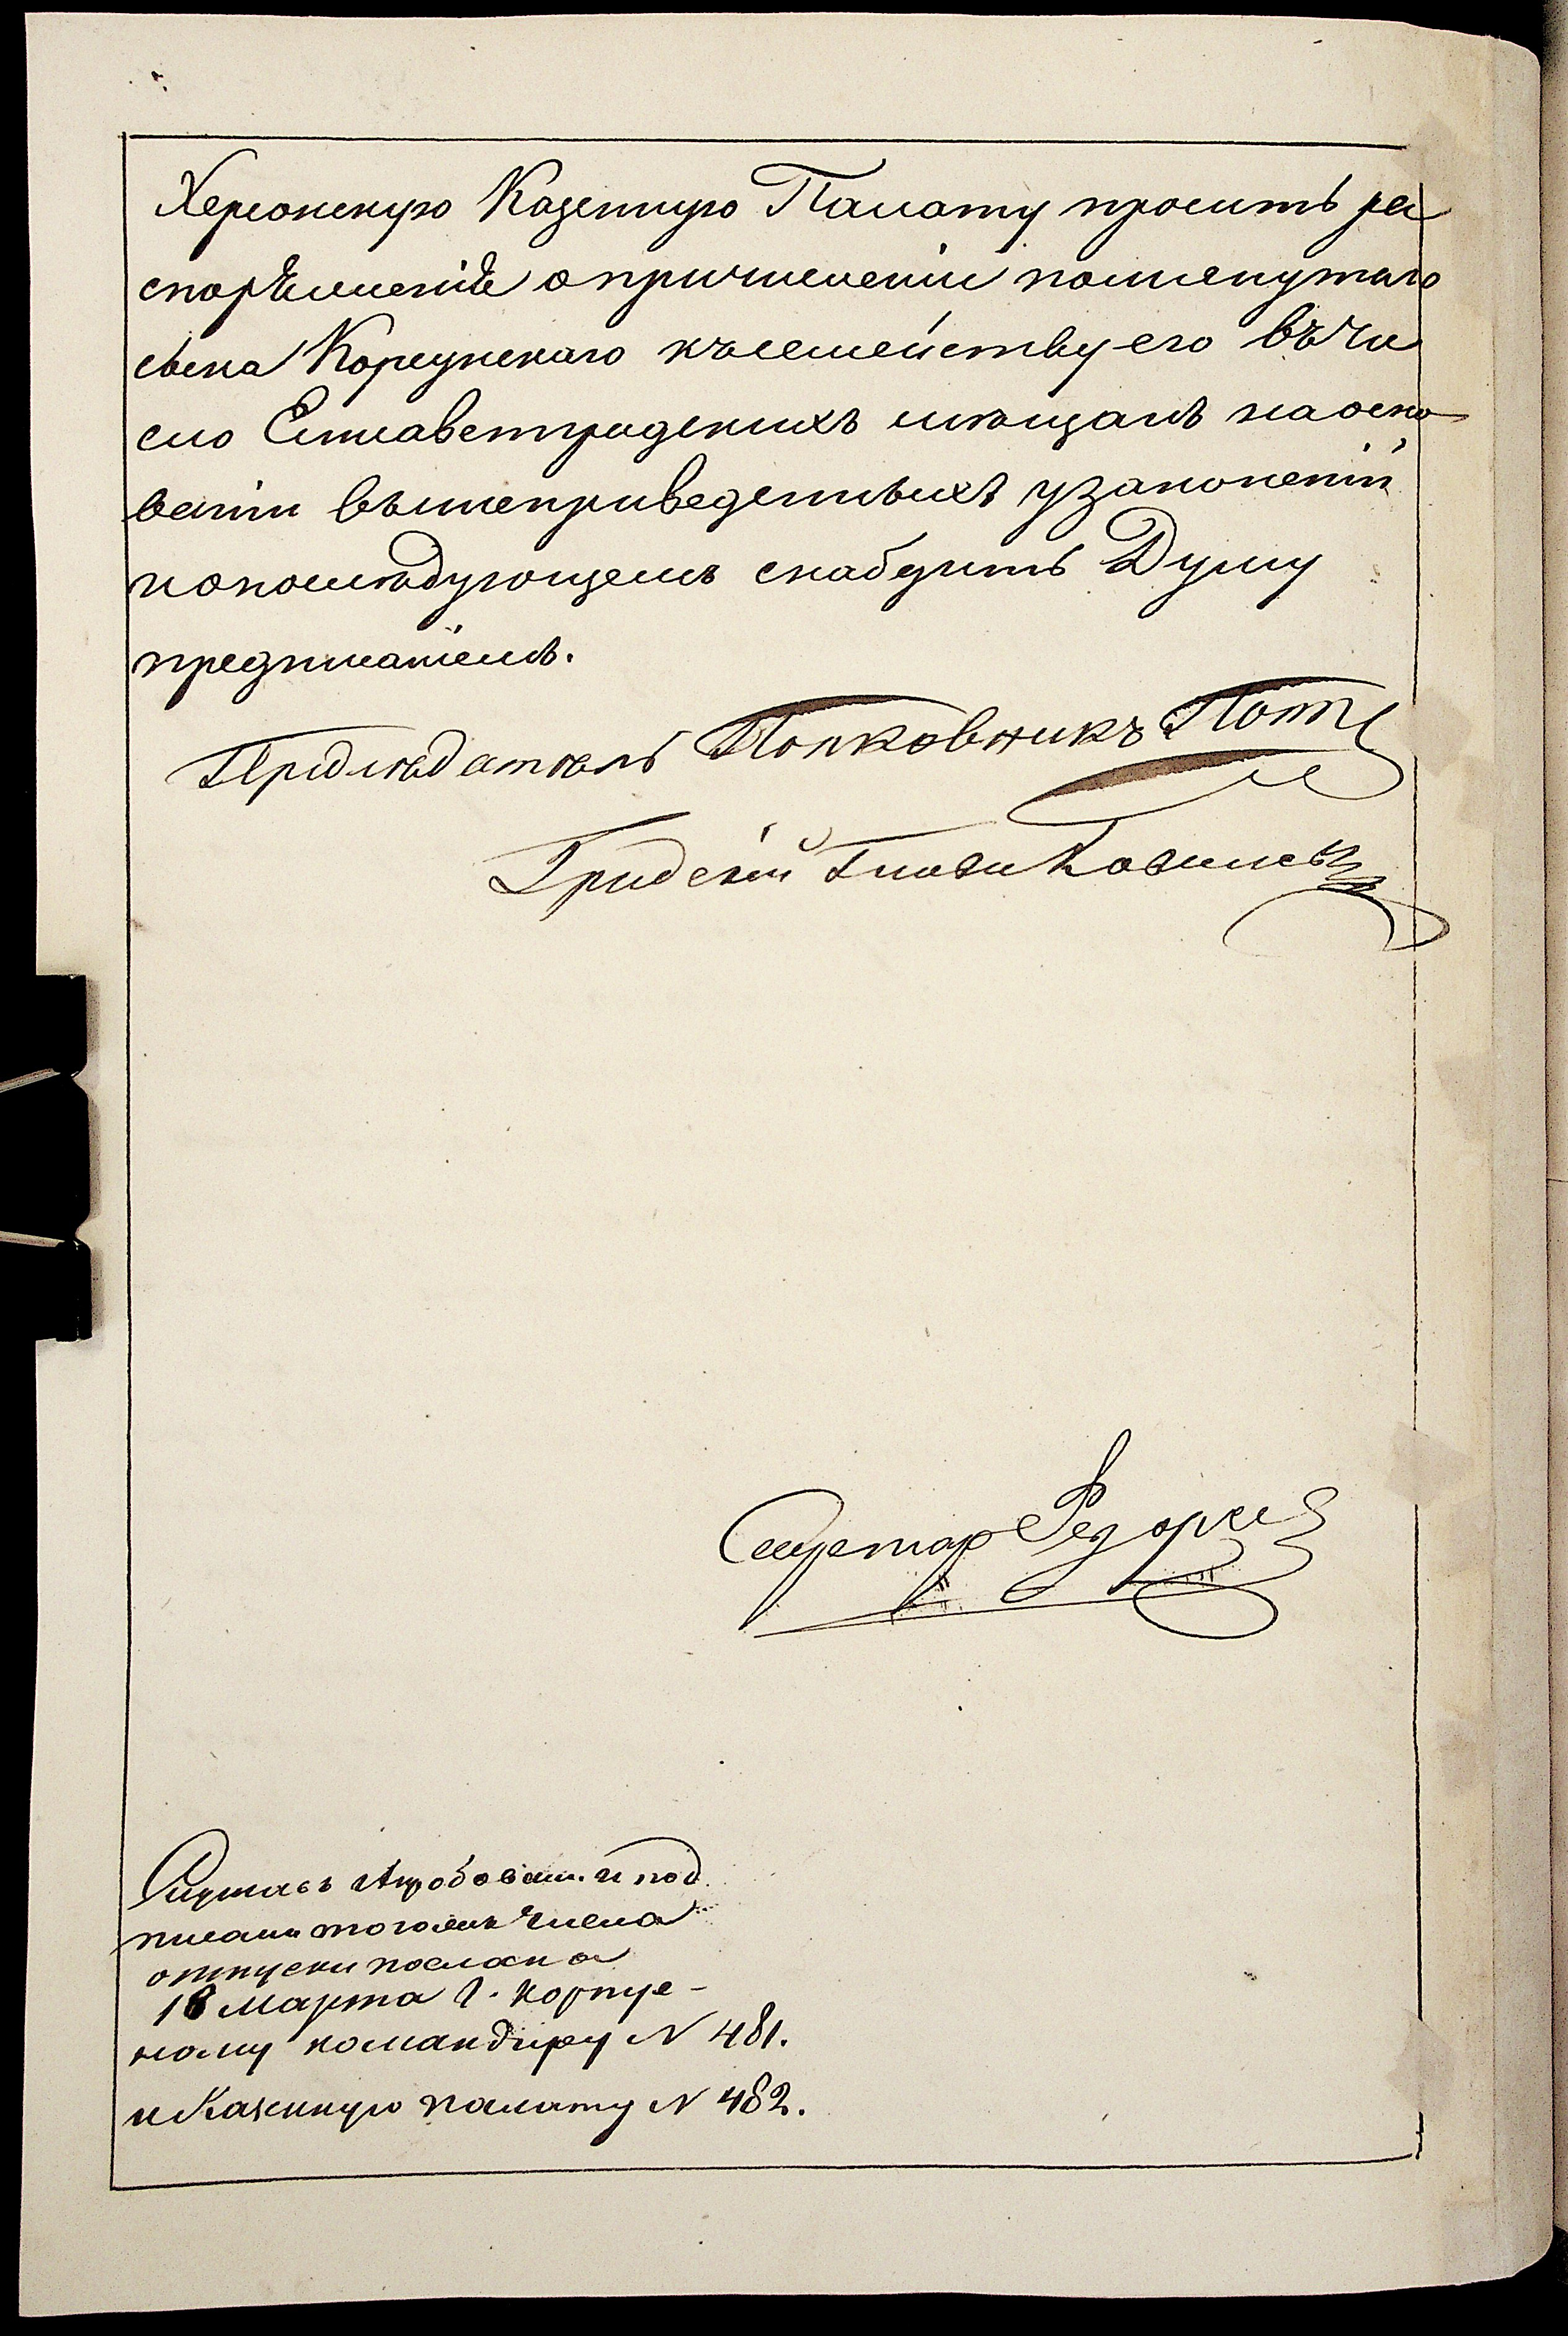 Херсонскую Казенную Палату просить ра
споряженiе о причисленiи помянутаго
сына Корсунскаго къ семейству его въ чи
сло Елисаветградскихъ мѣщанъ на осно-
ванiи вышеприведенныхъ узаконенiй
и о послѣдующемъ снабдить Думу
предписанiемъ.
Предсѣдатель Полковникъ
Градскiй Глава
Секретарь
и под
писанъ того же числа
отпуски посланы
18 Марта Г. Корпус-
ному командиру N 481.
и Казенную палату N 482.